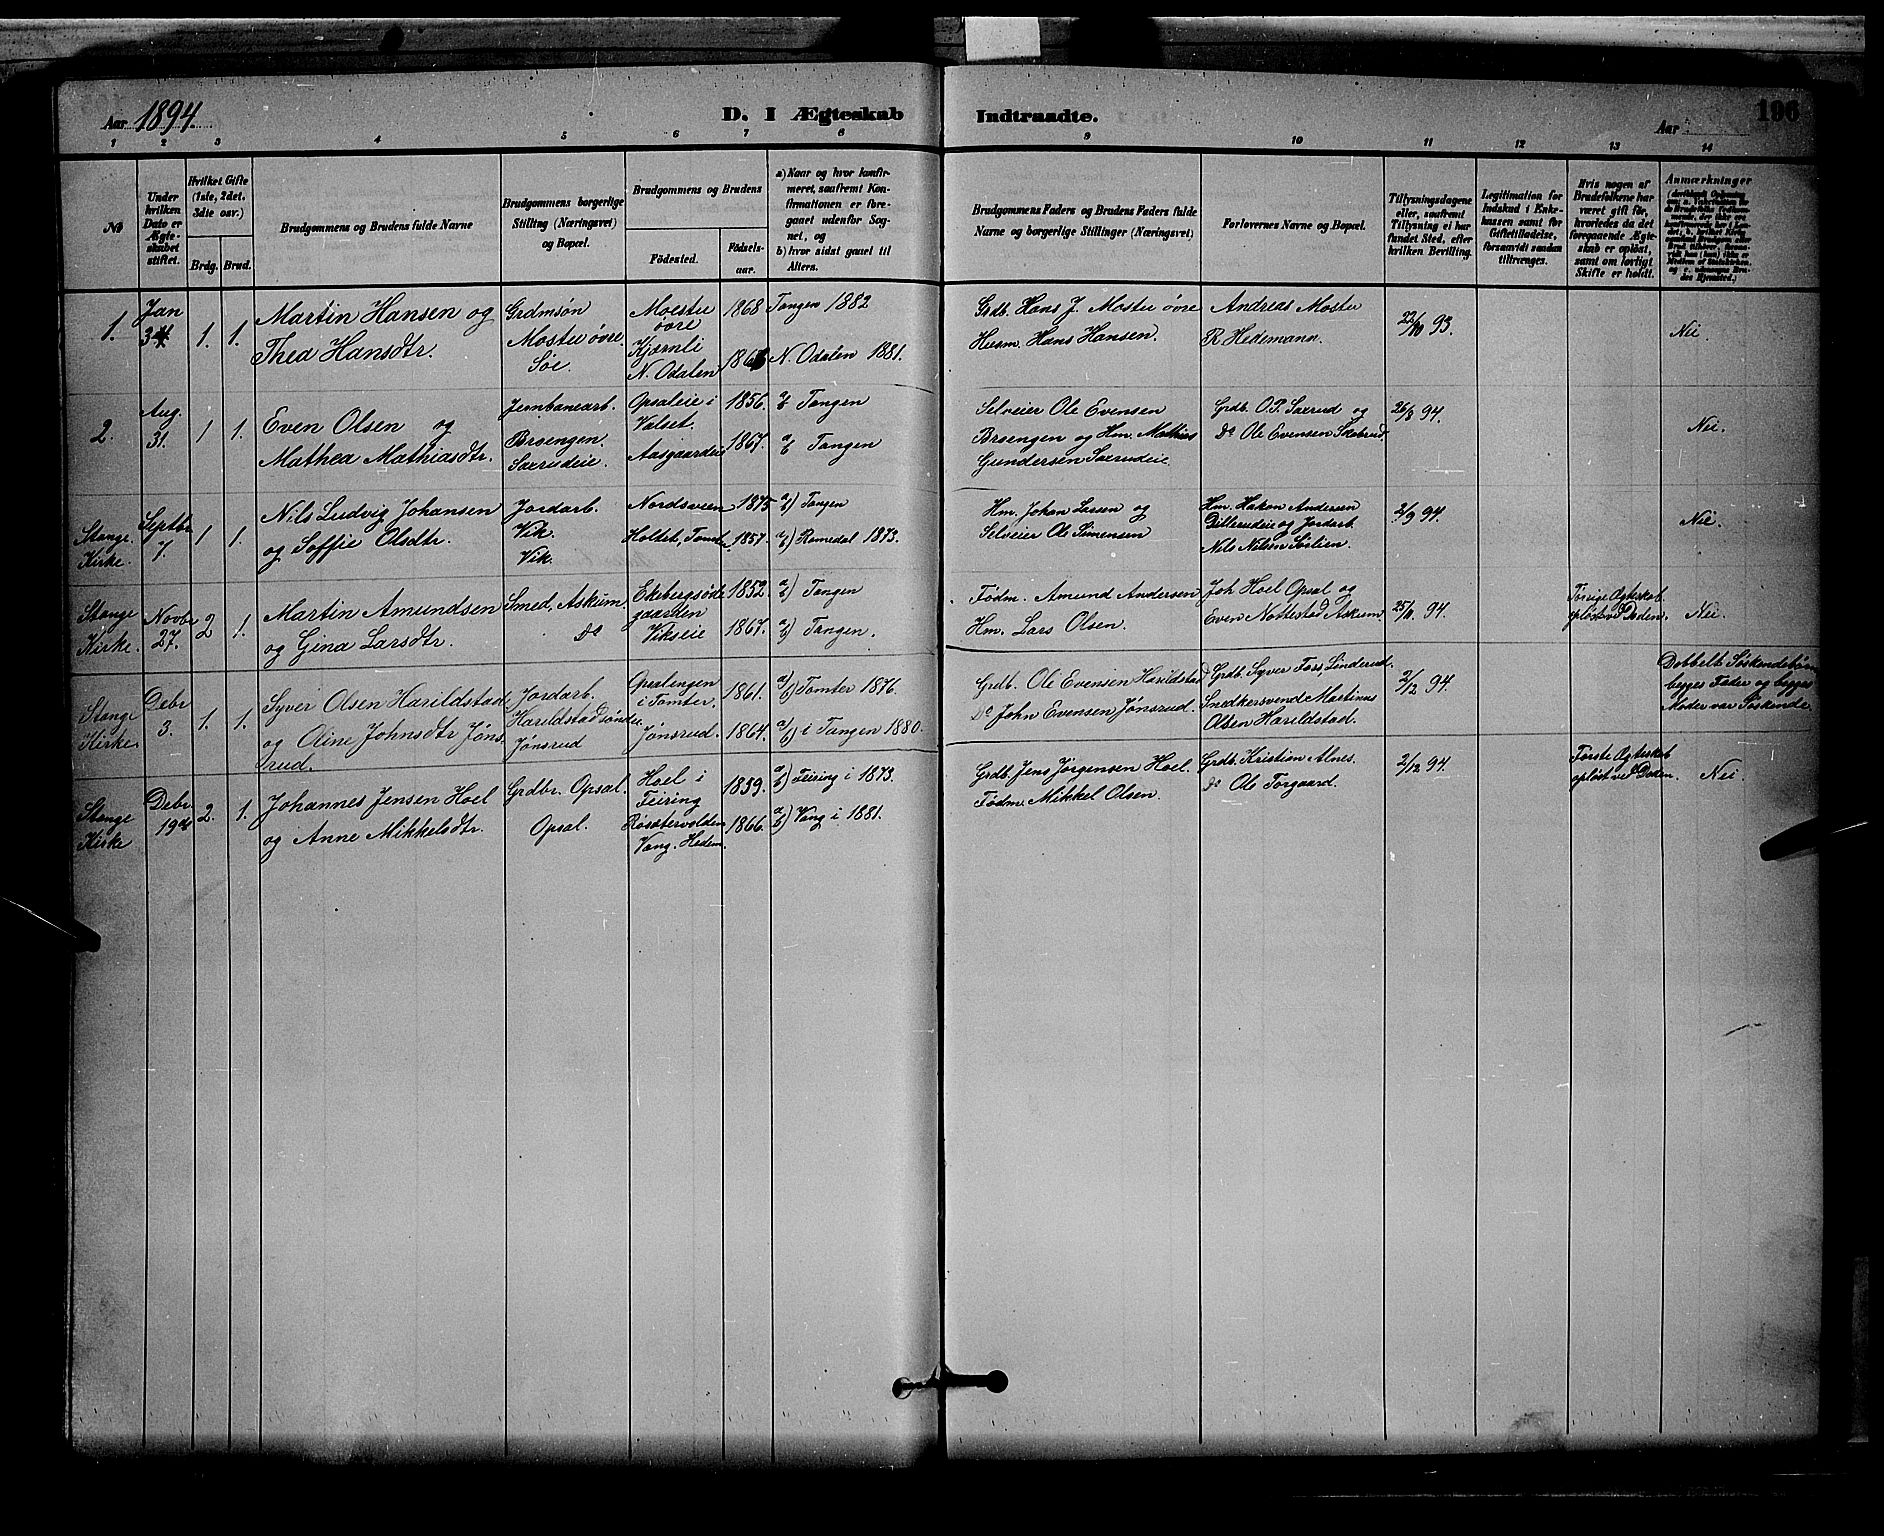 Aar 1894
D. I Ægteskab
Indtraadte.
Aar
196
1 2 3 4 5 6 7 8 9 10 11 12 13 14
No
Under
hvilken
Dato er
Ægte-
skabet
stiftet.
Hvilket Gifte
(1ste, 2det,
3die osv.)
Brdg. Brud.
Brudgommens og Brudens fulde Navne
Brudgommens borgerlige
Stilling (Næringsvei)
og Bopæl.
Brudgommens og Brudens
Födested.
Födsels-
aar.
a) Naar og hvor konfir-
meret, saafremt Kon-
firmationen er fore-
gaaet udenfor Sog-
net, og
b) hvor sidst gaaet til
Alters.
Brudgommens Faders og Brudens Faders fulde
Navne og borgerlige Stillinger (Næringsvei)
Forlovernes Navne og Bopæl.
Tillysningsdagene
eller, saafremt
Tillysning ei har
fundet Sted, efter
hvilken Bevilling.
Legitimation for
Indskud i Enke-
kassen samt for
Giftetilladelse,
forsaavidt saadan
tiltrænges.
Hvis nogen af
Brudefolkene har
været gift för,
hvorledes da det
foregaaende Ægte-
skab er oplöst,
samt om lovligt
Skifte er holdt.
Anmærkninger
1. Jan 1. 1.
Martin Hansen og
Thea Hansdtr.
Grdmsön
Mostue övre
Söe.
Moestue
övre
Kjærnli
N. Odalen
1868
Tangen 1882
N. Odalen 1881.
Grdb. Hans J. Mostue övre
Husm. Hans Hansen.
Andreas Mostue
R Hedemann.
22/10 93.
Nei.
2. Aug. 31. 1 1.
Even Olsen og
Mathea Mathiasdtr.
Jernbanearb.
Broengen.
Saxrudeie.
Opsaleie i
Valset.
Aasgaardeie
1856.
1867.
Tangen
Tangen
Selveier Ole Evensen
Broengen og Hm. Mathias
Gundersen Saxrudeie.
Grdb. O. P. Saxrud og
Do Ole Evensen Skabrud
26/8 94.
Nei.
Stange
Kirke.
Septbr
7. 1 1.
Nils Ludvig Johansen
og Soffie Olsdtr.
Jordarb.
Vik.
Vik.
Nordsveen
Holtet, Tomter
1875
1857.
a/b) Tangen
a/b) Romedal 1873.
Hm. Johan Larsen og
Selveier Ole Simensen
Hm. Hakon Andersen
Dillerudeie og Jordarb.
Nils Nilsen
2/9 94.
Nei.
Stange
Kirke.
Novbr
27. 2 1.
Martin Amundsen
og Gina Larsdtr.
Smed, Askum
Do
Ekebergsöde-
gaarden
Vikseie
1852
1867.
a/b) Tangen
a/b) Tangen.
Födm. Amund Andersen
Hm. Lars Olsen.
Joh Hoel Opsal og
Even Nottestad Askum
25/11 94.
Forrige Ægteskab
oplöst ved Döden.
Nei.
Stange
Kirke.
Debr
3. 1. 1.
Syver Olsen Harildstad
og Oline Johnsdtr Jöns
rud.
Jordarb.
Harildstad söndre
Jönsrud
Opsalengen
i Tomter.
Jönsrud.
1861.
1864.
a/b) Tomter 1876.
a/b) i Tangen 1880.
Grdb. Ole Evensen Harildstad
Do John Evensen Jönsrud.
Grdb. Syver Fass, Linderud.
Snedkersvend Martinus
Olsen Harildstad.
2/12 94.
Dobbelt Söskendebörn
begges Fader og begges
Moder var Söskende
Stange
Kirke
Debr.
19de 2. 1.
Johannes Jensen Hoel
og Anne Mikkelsdtr.
Grdbr. Opsal.
Opsal.
Hoel i
Feiring
Rösætervolden
Vang. Hedem.
1839.
1866.
a/b) Feiring i 1873.
a/b) Vang i 1881.
Grdb. Jens Jörgensen Hoel.
Födm. Mikkel Olsen.
Grdb. Kristian Alnes.
do Ole Torgaard.
2/12 94.
Förste Ægteskab
oplöst ved Döden.
Nei